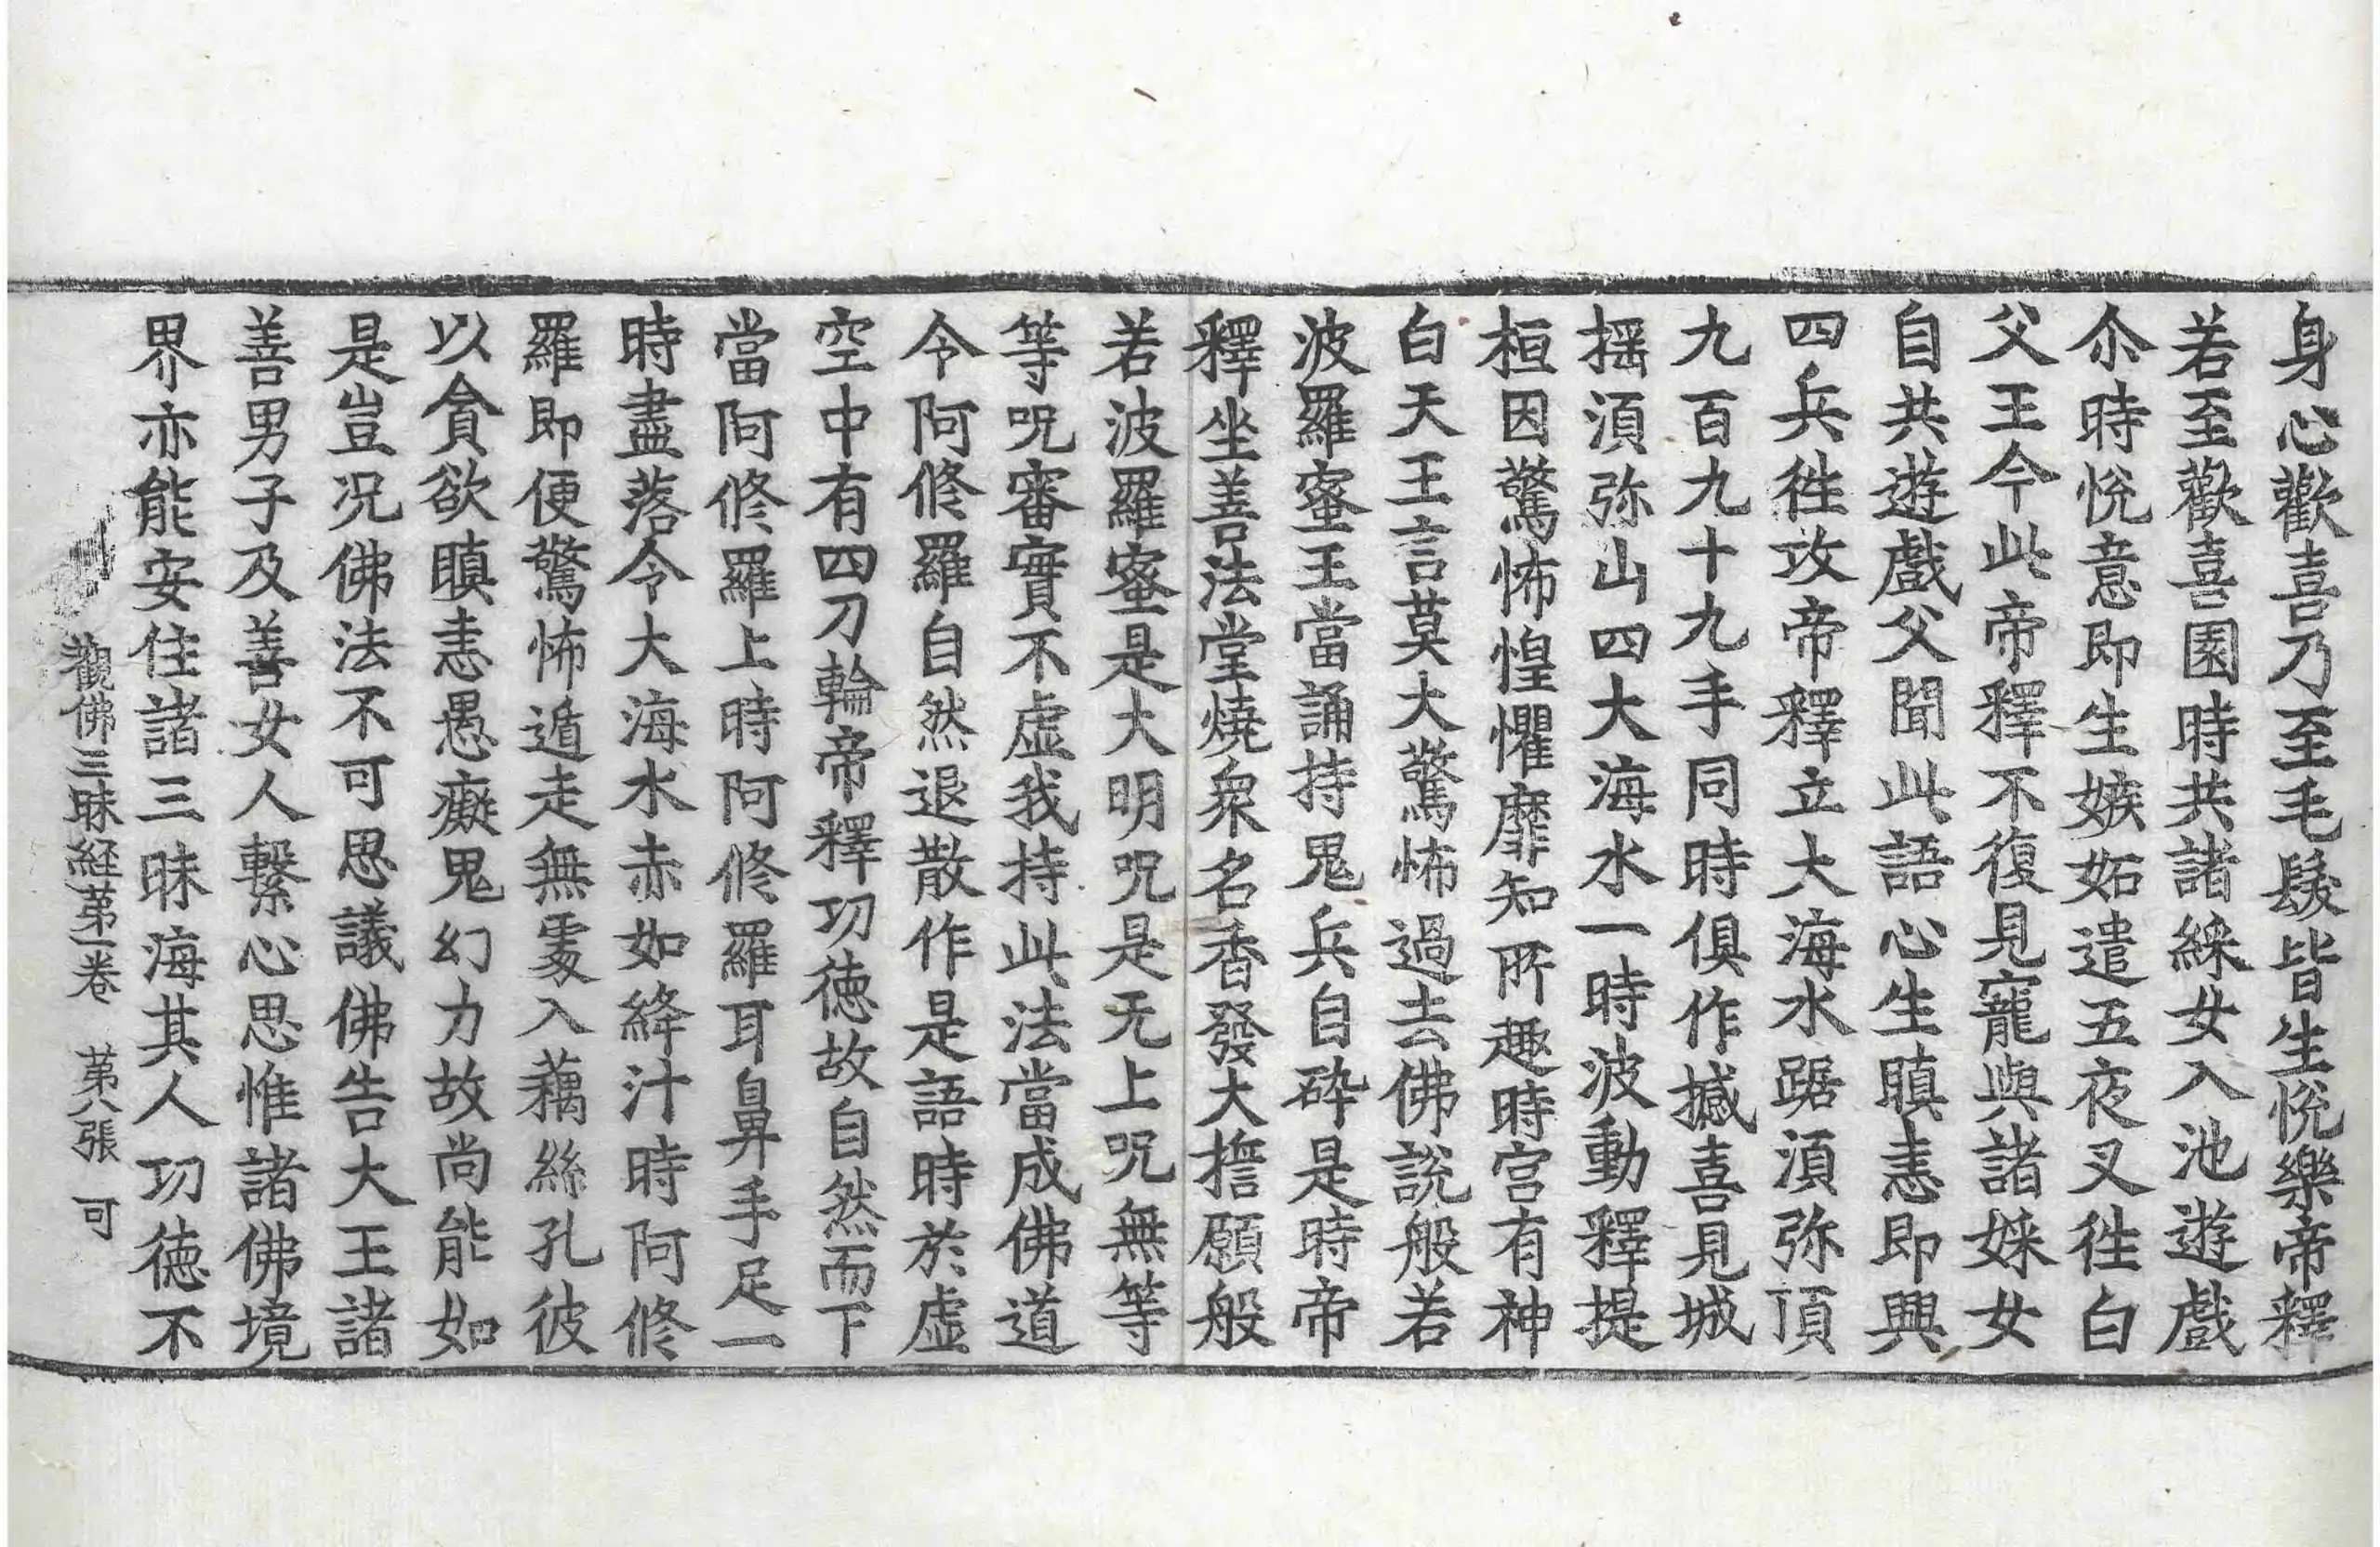 身心歡喜乃至毛髮皆生悅樂帝釋
若至歡喜園時共諸綵女入池遊戲
尒時悅意即生嫉妬遣五夜叉徃白
父王今此帝釋不復見寵與諸婇女
自共遊戲父聞此語心生瞋恚即興
四兵徃攻帝釋立大海水踞湏弥頂
九百九十九手同時俱作撼喜見城
摇湏弥山四大海水一時波動釋提
桓因驚怖惶懼靡知所趣時宫有神
白天王言莫大驚怖過去佛說般若
波羅蜜王當誦持鬼兵自碎是時帝
釋坐善法堂燒衆名香發大擔願般
若波羅蜜是大明呪是无上呪無等
等呪審實不虛我持此法當成佛道
令阿修羅自然退散作是語時於虛
空中有四刀輪帝釋功德故自然而下
當阿修羅上時阿修羅耳鼻手足一
時盡落令大海水赤如絳汁時阿修
羅即便驚怖遁走無處入藕絲孔彼
以貪欲瞋恚愚癡鬼幻力故尚能如
是豈况佛法不可思議佛告大王諸
善男子及善女人繫心思惟諸佛境
界亦能安住諸三昧海其人功德不
觀佛三昧経苐一卷 苐八張 可